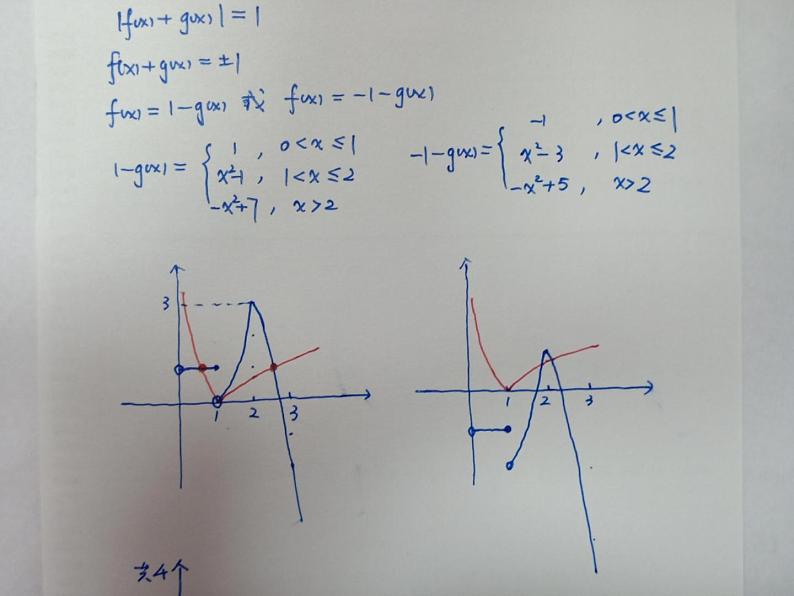 |f(x)+g(x)|=1
f(x)+g(x)=±1
f(x)=1-g(x) 或 f(x)=-1-g(x)
1-g(x)= { 1 , 0<x≤1
x²-1 , 1<x≤2
-x²+7 , x>2
-1-g(x)= { -1 , 0<x≤1
x²-3 , 1<x≤2
-x²+5 , x>2
3
1 2 3
1 2 3
共4个